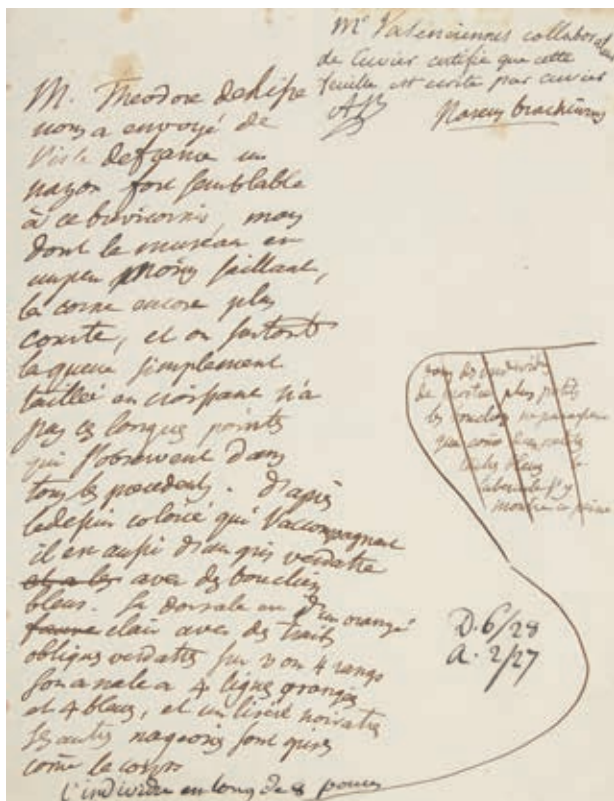 Mr Valenciennes collaborateur
de Cuvier certifie que cette
feuille est ecrite par cuvier
Naseus brachiurus
M. Theodore
nous a envoyé de
l'isle de france un
nazon fort semblable
à ce brevicornis, mais
dont le museau est
un peu moins saillant,
la corne encore plus
courte, et où surtout
la queue simplement
taillée en croissant n'a
pas ces longues pointes
qui s'observent dans
tous les precedents. D'après
le dessin colorié qui l'accompagnent
il est aussi d'un gris verdatre
et a les avec des boucliers
bleus. Sa dorsale est d'un orangé
fauve clair avec des traits
obliques verdatres sur 3 ou 4 rangs
son anale a 4 lignes orangées
et 4 bleues, et un liseré noiratre
Ses autres nageoires sont grises
come le corps
l'individu est long de 8 pouces
dans des individus
de plus petits
les boucliers ne paraissent
que come
D. 6/28
A. 2/27